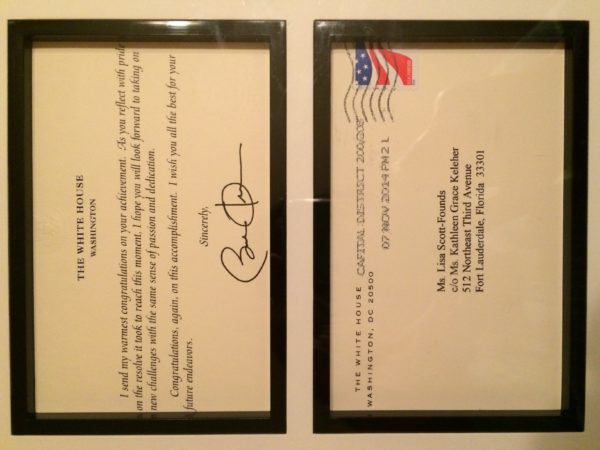 THE WHITE HOUSE
WASHINGTON
I send my warmest congratulations on your achievement. As you reflect with pride
on the resolve it took to reach this moment, I hope you will look forward to taking on
new challenges with the same sense of passion and dedication.
Congratulations, again, on this accomplishment. I wish you all the best for your
future endeavors.
Sincerely,
THE WHITE HOUSE
WASHINGTON, DC 20500
CAPITAL DISTRICT
07 NOV 2014 PM 2 L
Ms. Lisa Scott-Founds
c/o Ms. Kathleen Grace Keleher
512 Northeast Third Avenue
Fort Lauderdale, Florida 33301